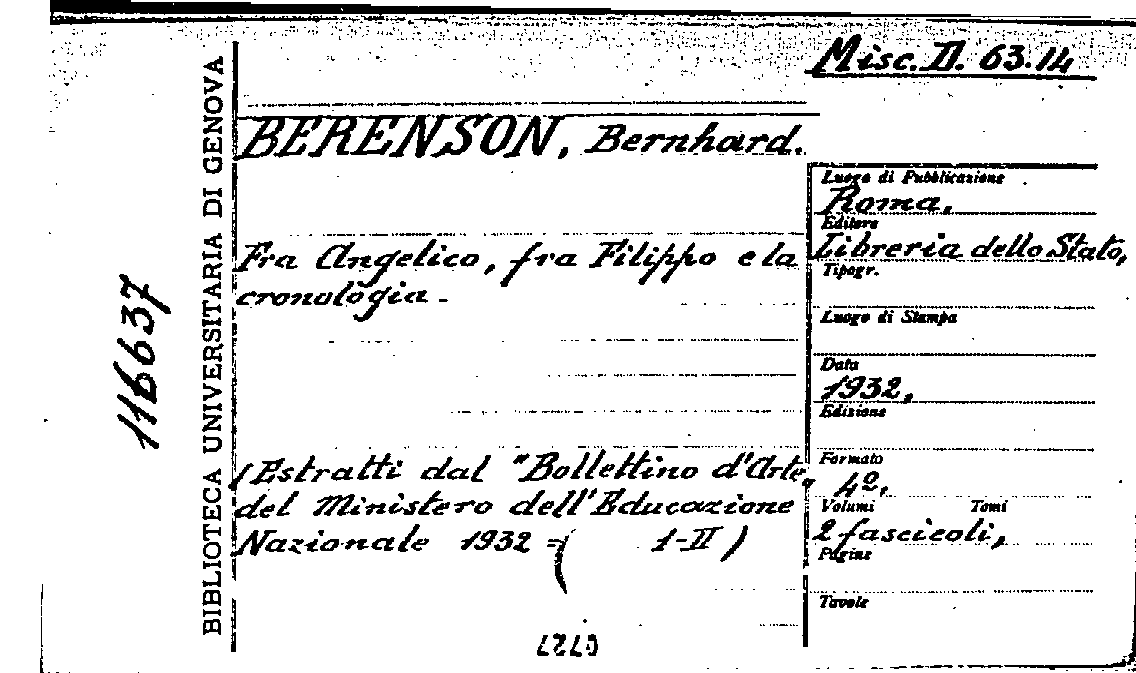 Misc. D. 63.14
BERENSON, Bernhard.
Fra Angelico, fra Filippo e la
cronologia.
(Estratti dal "Bollettino d'Arte,
del Ministero dell'Educazione
Nazionale 1932 = ( 1-II )
Luogo di Pubblicazione
Roma,
Editore
Libreria dello Stato,
Tipogr.
Luogo di Stampa
Data
1932,
Edizione
Formato
4º,
Volumi Tomi
2 fascicoli,
Pagine
Tavole
BIBLIOTECA UNIVERSITARIA DI GENOVA
116637